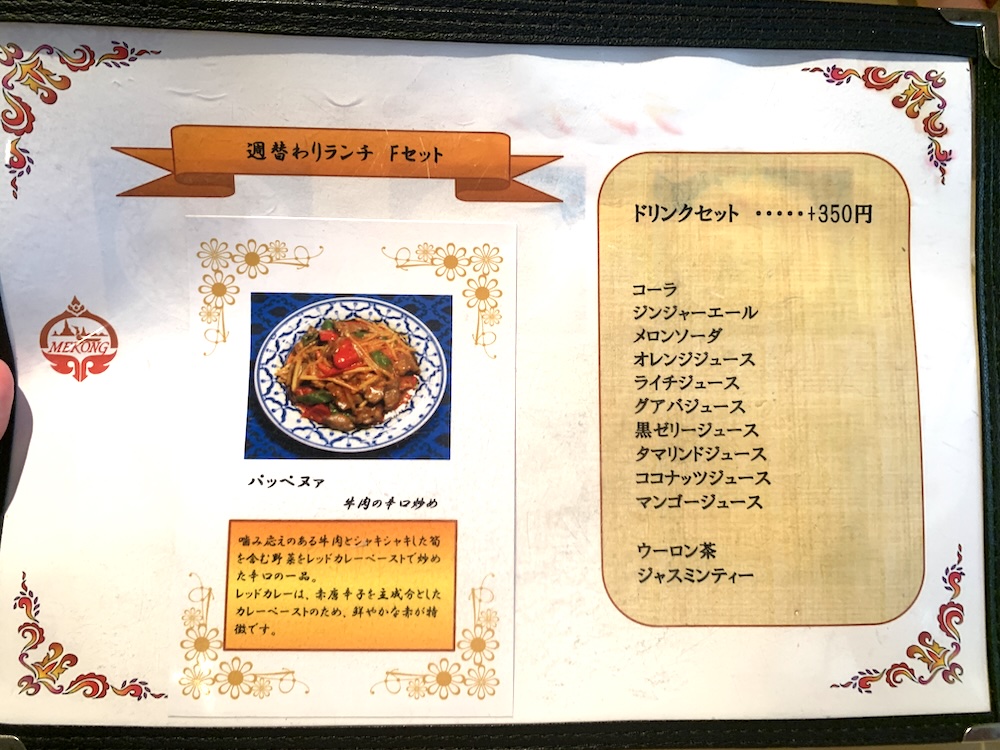 週替わりランチ Fセット
MEKONG
パッペヌァ
牛肉の辛口炒め
噛み応えのある牛肉とシャキシャキした筍
を含む野菜をレッドカレーペーストで炒め
た辛口の一品。
レッドカレーは、赤唐辛子を主成分とした
カレーペーストのため、鮮やかな赤が特
徴です。
ドリンクセット ・・・・・+350円
コーラ
ジンジャーエール
メロンソーダ
オレンジジュース
ライチジュース
グアバジュース
黒ゼリージュース
タマリンドジュース
ココナッツジュース
マンゴージュース
ウーロン茶
ジャスミンティー